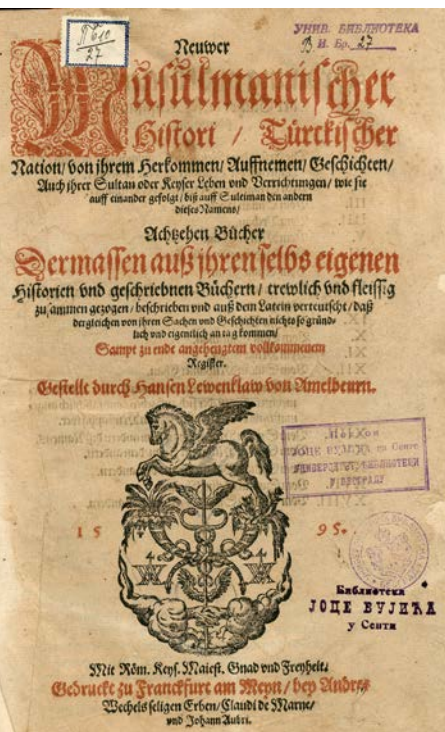 П б10
27
УНИВ. БИБЛИОТЕКА
В. И. Бр. 27
Neuwer
Musulmanischer
Histori / Türckischer
Nation/ von jhrem Herkommen/ Auffnemen/ Geschichten/
Auch jhrer Sultan oder Keyser Leben vnd Verrichtungen/ wie sie
auff einander gefolgt/ biß auff Suleiman den andern
dieses Namens/
Achtzehen Bücher
Dermassen auß jhren selbs eigenen
Historien vnd geschriebnen Büchern/ trewlich vnd fleissig
zusammen gezogen/ beschrieben vnd auß dem Latein verteutscht/ daß
dergleichen von jhren Sachen vnd Geschichten nichts so gründ-
lich vnd eigentlich an tag kommen/
Sampt zu ende angehengtem vollkommenem
Register.
Gestellt durch Hansen Lewenklaw von Amelbeurn.
Поклон
ЈОЦЕ ВУЈИЋА из Сенте
УНИВЕРЗИТ. БИБЛИОТЕЦИ
У БЕОГРАДУ
1 5 9 5.
Библиотека
ЈОЦЕ ВУЈИЋА
у Сенти
Mit Röm. Keys. Maiest. Gnad vnd Freyheit.
Gedruckt zu Franckfurt am Meyn/ bey Andres
Wechels seligen Erben/ Claudi de Marne/
vnd Johann Aubri.